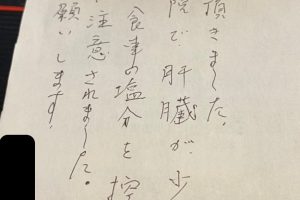 頂きました。
院で肝臓が少
食事の塩分を控
注意されました。
願いします。